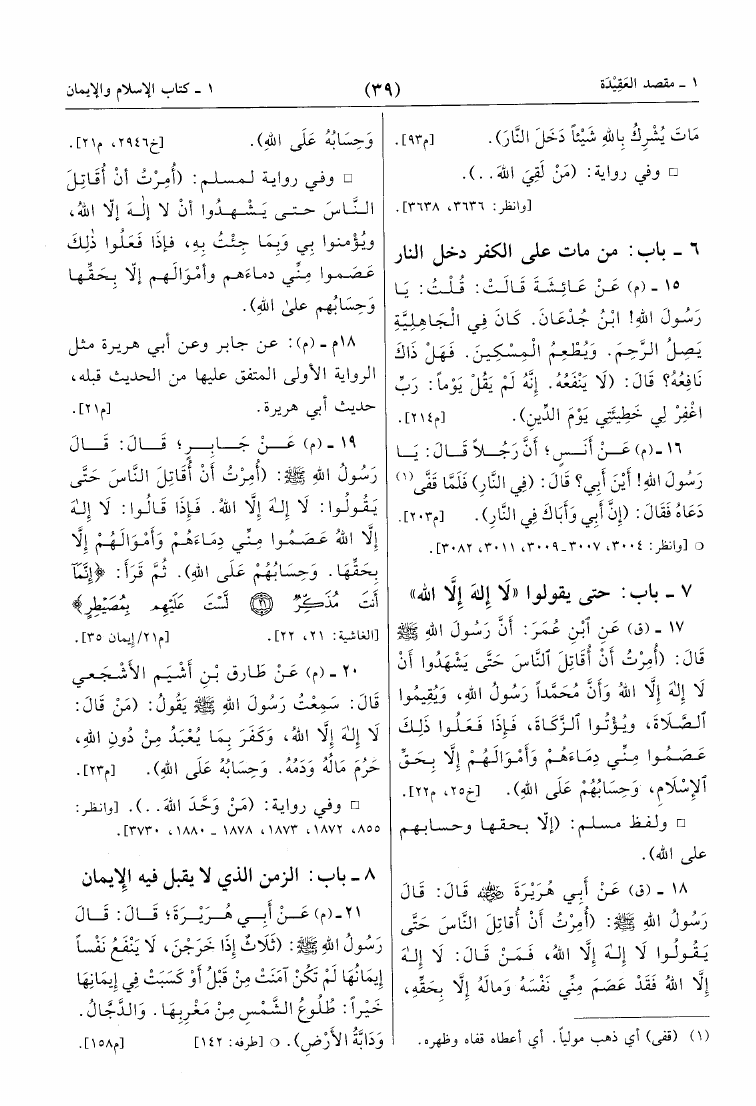 ١ ـ مقصد العَقِيْدَة
(٣٩)
١ ـ كتاب الإسلام والإيمان
مَاتَ يُشْرِكُ بِاللهِ شَيْئاً دَخَلَ النَّارَ). [م٩٣].
□ وفي رواية: (مَنْ لَقِيَ اللهَ..).
[وانظر: ٣٦٣٦، ٣٦٣٨].
٦ ـ باب: من مات على الكفر دخل النار
١٥ ـ (م) عَنْ عَائِشَةَ قَالَتْ: قُلْتُ: يَا
رَسُولَ اللهِ! ابْنُ جُدْعَانَ. كَانَ فِي الْجَاهِلِيَّةِ
يَصِلُ الرَّحِمَ. وَيُطْعِمُ الْمِسْكِينَ. فَهَلْ ذَاكَ
نَافِعُهُ؟ قَالَ: (لَا يَنْفَعُهُ. إِنَّهُ لَمْ يَقُلْ يَوْماً: رَبِّ
اغْفِرْ لِي خَطِيئَتِي يَوْمَ الدِّينِ). [م٢١٤].
١٦ ـ (م) عَنْ أَنَسٍ؛ أَنَّ رَجُلاً قَالَ: يَا
رَسُولَ اللهِ! أَيْنَ أَبِي؟ قَالَ: (فِي النَّارِ) فَلَمَّا قَفَّى(١)
دَعَاهُ فَقَالَ: (إِنَّ أَبِي وَأَبَاكَ فِي النَّارِ). [م٢٠٣].
○ [وانظر: ٣٠٠٤، ٣٠٠٧ ـ ٣٠٠٩، ٣٠١١، ٣٠٨٢].
٧ ـ باب: حتى يقولوا «لَا إِلهَ إِلَّا الله»
١٧ ـ (ق) عَنِ ابْنِ عُمَرَ: أَنَّ رَسُولَ اللهِ ﷺ
قَالَ: (أُمِرْتُ أَنْ أُقَاتِلَ النَّاسَ حَتَّى يَشْهَدُوا أَنْ
لَا إِلهَ إِلَّا اللهُ وَأَنَّ مُحَمَّداً رَسُولُ اللهِ، وَيُقِيمُوا
الصَّلَاةَ، وَيُؤْتُوا الزَّكَاةَ، فَإِذَا فَعَلُوا ذٰلِكَ
عَصَمُوا مِنِّي دِمَاءَهُمْ وَأَمْوَالَهُمْ إِلَّا بِحَقِّ
الإِسْلَامِ، وَحِسَابُهُمْ عَلَى اللهِ). [خ٢٥، م٢٢].
□ ولفظ مسلم: (إلّا بحقها وحسابهم
على الله).
١٨ ـ (ق) عَنْ أَبِي هُرَيْرَةَ رضي الله عنه قَالَ: قَالَ
رَسُولُ اللهِ ﷺ: (أُمِرْتُ أَنْ أُقَاتِلَ النَّاسَ حَتَّى
يَقُولُوا لَا إِلهَ إِلَّا اللهُ، فَمَنْ قَالَ: لَا إِلهَ
إِلَّا اللهُ فَقَدْ عَصَمَ مِنِّي نَفْسَهُ وَمالَهُ إِلَّا بِحَقِّهِ،
(١) (قفى) أي ذهب مولياً. أي أعطاه قفاه وظهره.
وَحِسَابُهُ عَلَى اللهِ). [خ٢٩٤٦، م٢١].
□ وفي رواية لمسلم: (أُمِرْتُ أنْ أُقَاتِلَ
النَّاسَ حتى يَشْهدُوا أنْ لا إلهَ إلّا اللهُ،
ويُؤْمنوا بِي وَبِمَا جِئْتُ بِهِ، فإذَا فَعَلُوا ذٰلِكَ
عَصَموا مِنِّي دماءَهم وأمْوَالَهم إلّا بِحَقِّها
وَحِسَابُهم علىٰ اللهِ).
١٨م ـ (م): عن جابر وعن أبي هريرة مثل
الرواية الأولى المتفق عليها من الحديث قبله،
حديث أبي هريرة. [م٢١].
١٩ ـ (م) عَنْ جَابِرٍ؛ قَالَ: قَالَ
رَسُولُ اللهِ ﷺ: (أُمِرْتُ أَنْ أُقَاتِلَ النَّاسَ حَتَّى
يَقُولُوا: لَا إِلهَ إِلَّا اللهُ. فَإِذَا قَالُوا: لَا إِلهَ
إِلَّا اللهُ عَصَمُوا مِنِّي دِمَاءَهُمْ وَأَمْوَالَهُمْ إِلَّا
بِحَقِّهَا. وَحِسَابُهُمْ عَلَى اللهِ). ثُمَّ قَرَأَ: ﴿إِنَّمَآ
أَنتَ مُذَكِّرٌ ۝٢١ لَّسْتَ عَلَيْهِم بِمُصَيْطِرٍ﴾
[الغاشية: ٢١، ٢٢]. [م٢١/إيمان ٣٥].
٢٠ ـ (م) عَنْ طَارِقِ بْنِ أَشْيَمَ الأَشْجَعي
قَالَ: سَمِعْتُ رَسُولَ اللهِ ﷺ يَقُولُ: (مَنْ قَالَ:
لَا إِلهَ إِلَّا اللهُ، وَكَفَرَ بِمَا يُعْبَدُ مِنْ دُونِ اللهِ،
حَرُمَ مَالُهُ وَدَمُهُ. وَحِسَابُهُ عَلَى اللهِ). [م٢٣].
□ وفي رواية: (مَنْ وَحَّدَ اللهَ..). [وانظر:
٨٥٥، ١٨٧٢، ١٨٧٣، ١٨٧٨ ـ ١٨٨٠، ٣٧٣٠].
٨ ـ باب: الزمن الذي لا يقبل فيه الإيمان
٢١ ـ (م) عَنْ أَبِي هُرَيْرَةَ؛ قَالَ: قَالَ
رَسُولُ اللهِ ﷺ: (ثَلَاثٌ إِذَا خَرَجْنَ، لَا يَنْفَعُ نَفْساً
إِيمَانُهَا لَمْ تَكُنْ آمَنَتْ مِنْ قَبْلُ أَوْ كَسَبَتْ فِي إِيمَانِهَا
خَيْراً: طُلُوعُ الشَّمْسِ مِنْ مَغْرِبِهَا. وَالدَّجَّالُ.
وَدَابَّةُ الأَرْضِ). ○ [طرفه: ١٤٢] [م١٥٨].